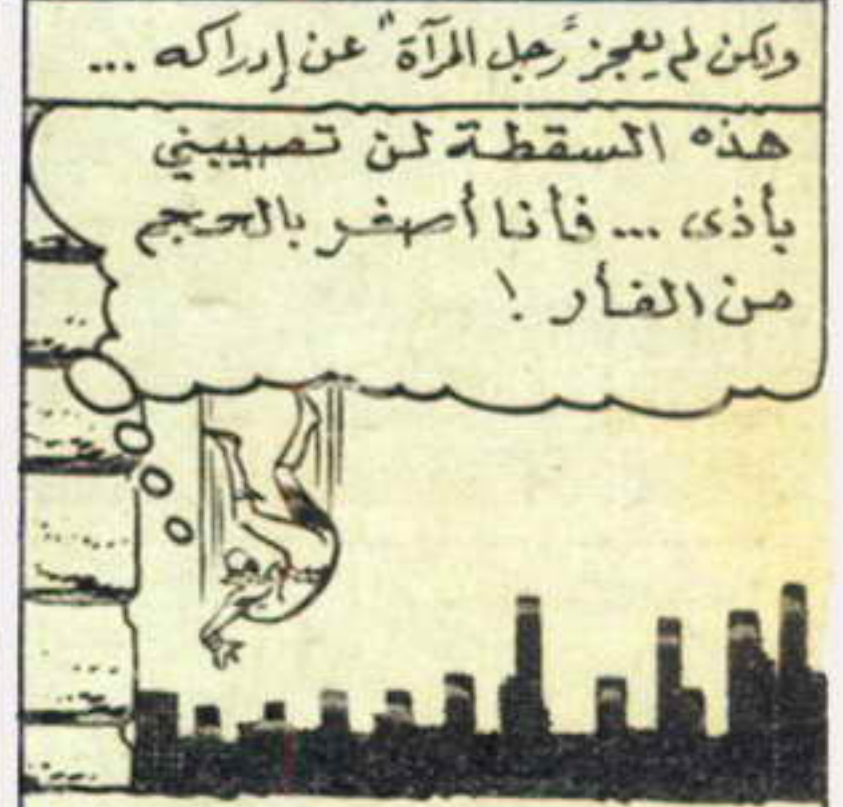 ولكن لم يعجز "رجل المرآة" عن إدراكه ...
هذه السقطة لن تصيبني
بأذى ... فأنا أصغر بالحجم
من الفأر !